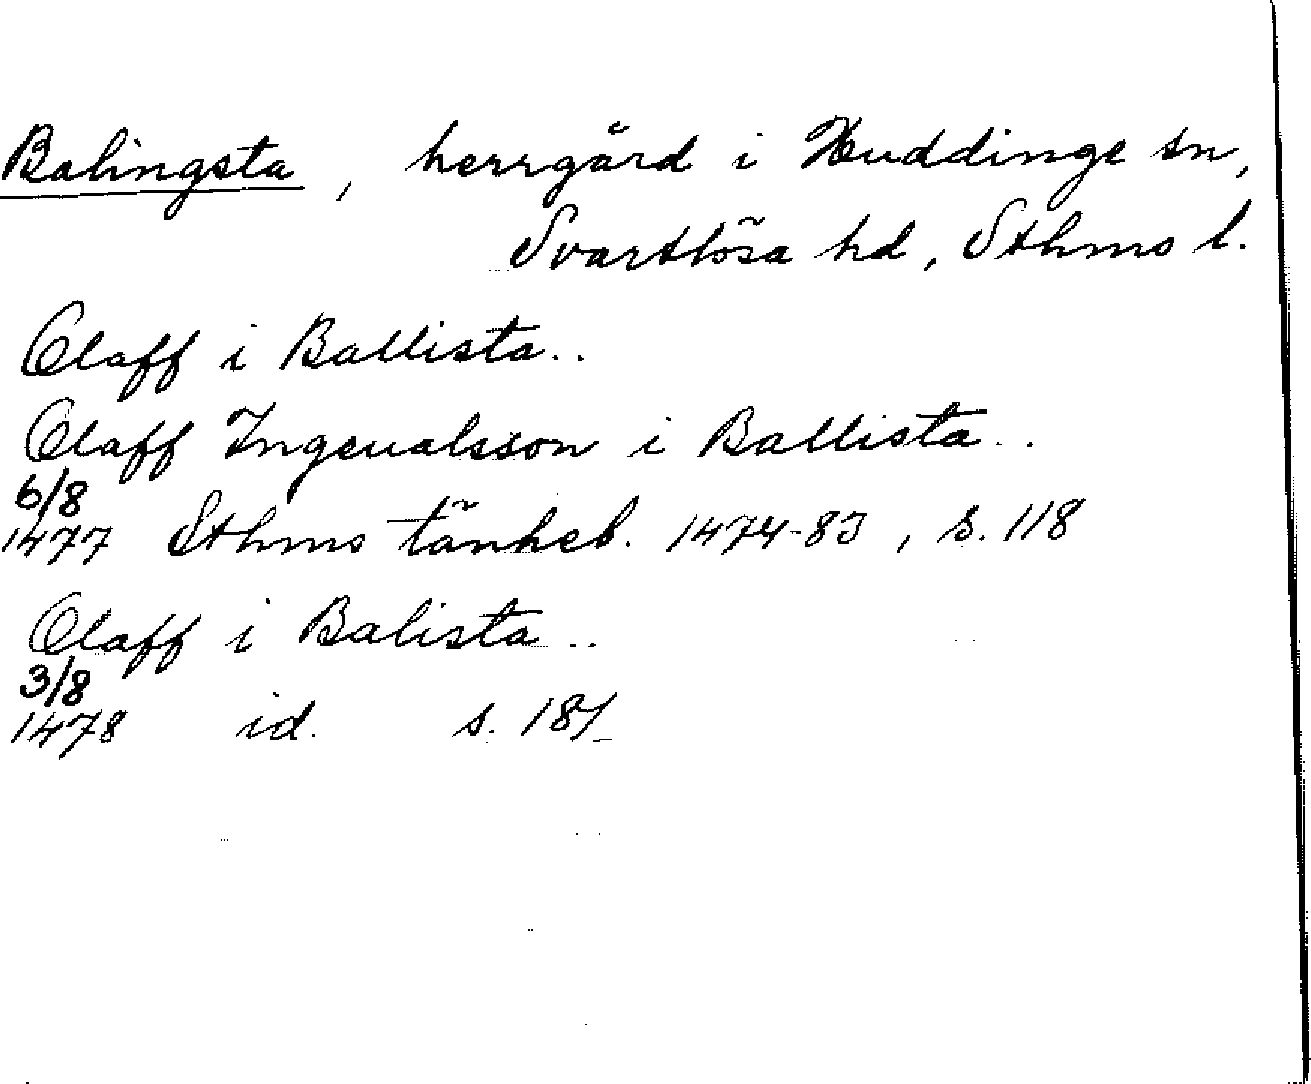 Balingsta, herrgård i Huddinge sn,
Svartlösa hd, Sthms l.
Olaff i Ballista..
Olaff Ingeualsson i Ballista..
6/8
1477 Sthms tänkeb. 1474-83, s. 118
Olaff i Balista..
3/8
1478 id. s.